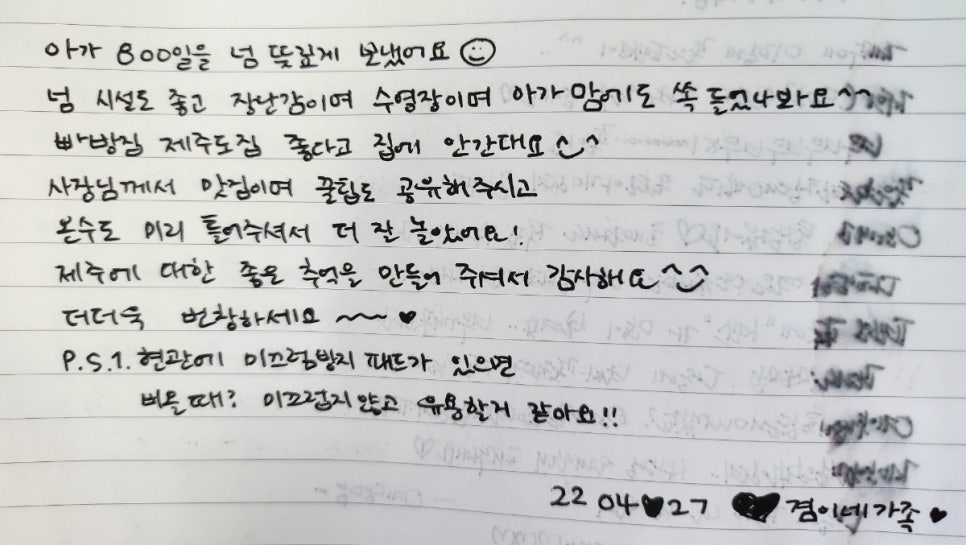 아가 800일을 넘 뜻깊게 보냈어요
넘 시설도 좋고 장난감이며 수영장이며 아가맘에도 쏙 들었나봐요^^
빠방집 제주도집 좋다고 집에 안간대요^^
사장님께서 맛집이며 꿀팁도 공유해주시고
온수도 미리 틀어주셔서 더 잘 놀았어요!
제주에 대한 좋은 추억을 만들어 주셔서 감사해요^^
더더욱 번창하세요 ~~ ♥
P.S.1. 현관에 미끄럼방지 패드가 있으면
비올때? 미끄럽지않고 유용할거 같아요!!
22 04♥27 ♥ 겸이네가족♥